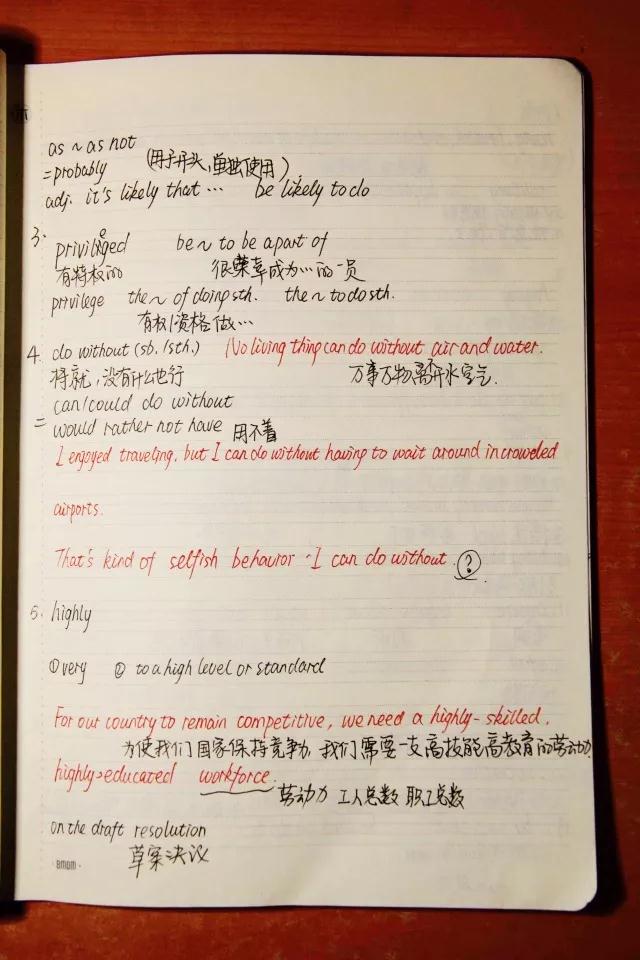 as ~ as not
=probably (用于开头,单独使用)
adj. it's likely that … be likely to do
3. privileged be ~ to be a part of
有特权的 很荣幸成为…的一员
privilege the ~ of doing sth. the ~ to do sth.
有权/资格做…
4. do without (sb. /sth.) No living thing can do without air and water.
将就,没有什么也行 万事万物离不开水空气.
can/could do without
= would rather not have 用不着
I enjoyed traveling. but I can do without having to wait around in crowded
airports.
That's kind of selfish behavior I can do without. ?
5. highly
①very ② to a high level or standard
For our country to remain competitive, we need a highly-skilled,
为使我们国家保持竞争力,我们需要一支高技能高教育的劳动力
highly-educated workforce.
劳动力 工人总数 职工总数
on the draft resolution
草案决议